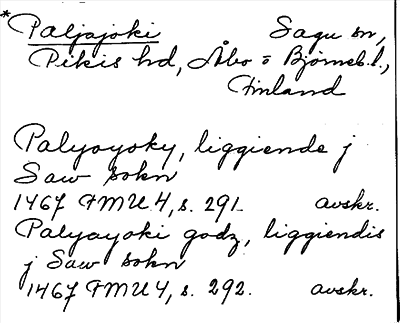 * Paljajoki Sagu sn,
Pikis hd, Åbo o Björneb. l.,
Finland
Palyoyoky, liggiende j
Saw sokn
1467 FMU 4, s. 291. avskr.
Palyayoki godz, liggiendis
j Saw sokn
1467 FMU 4, s. 292. avskr.